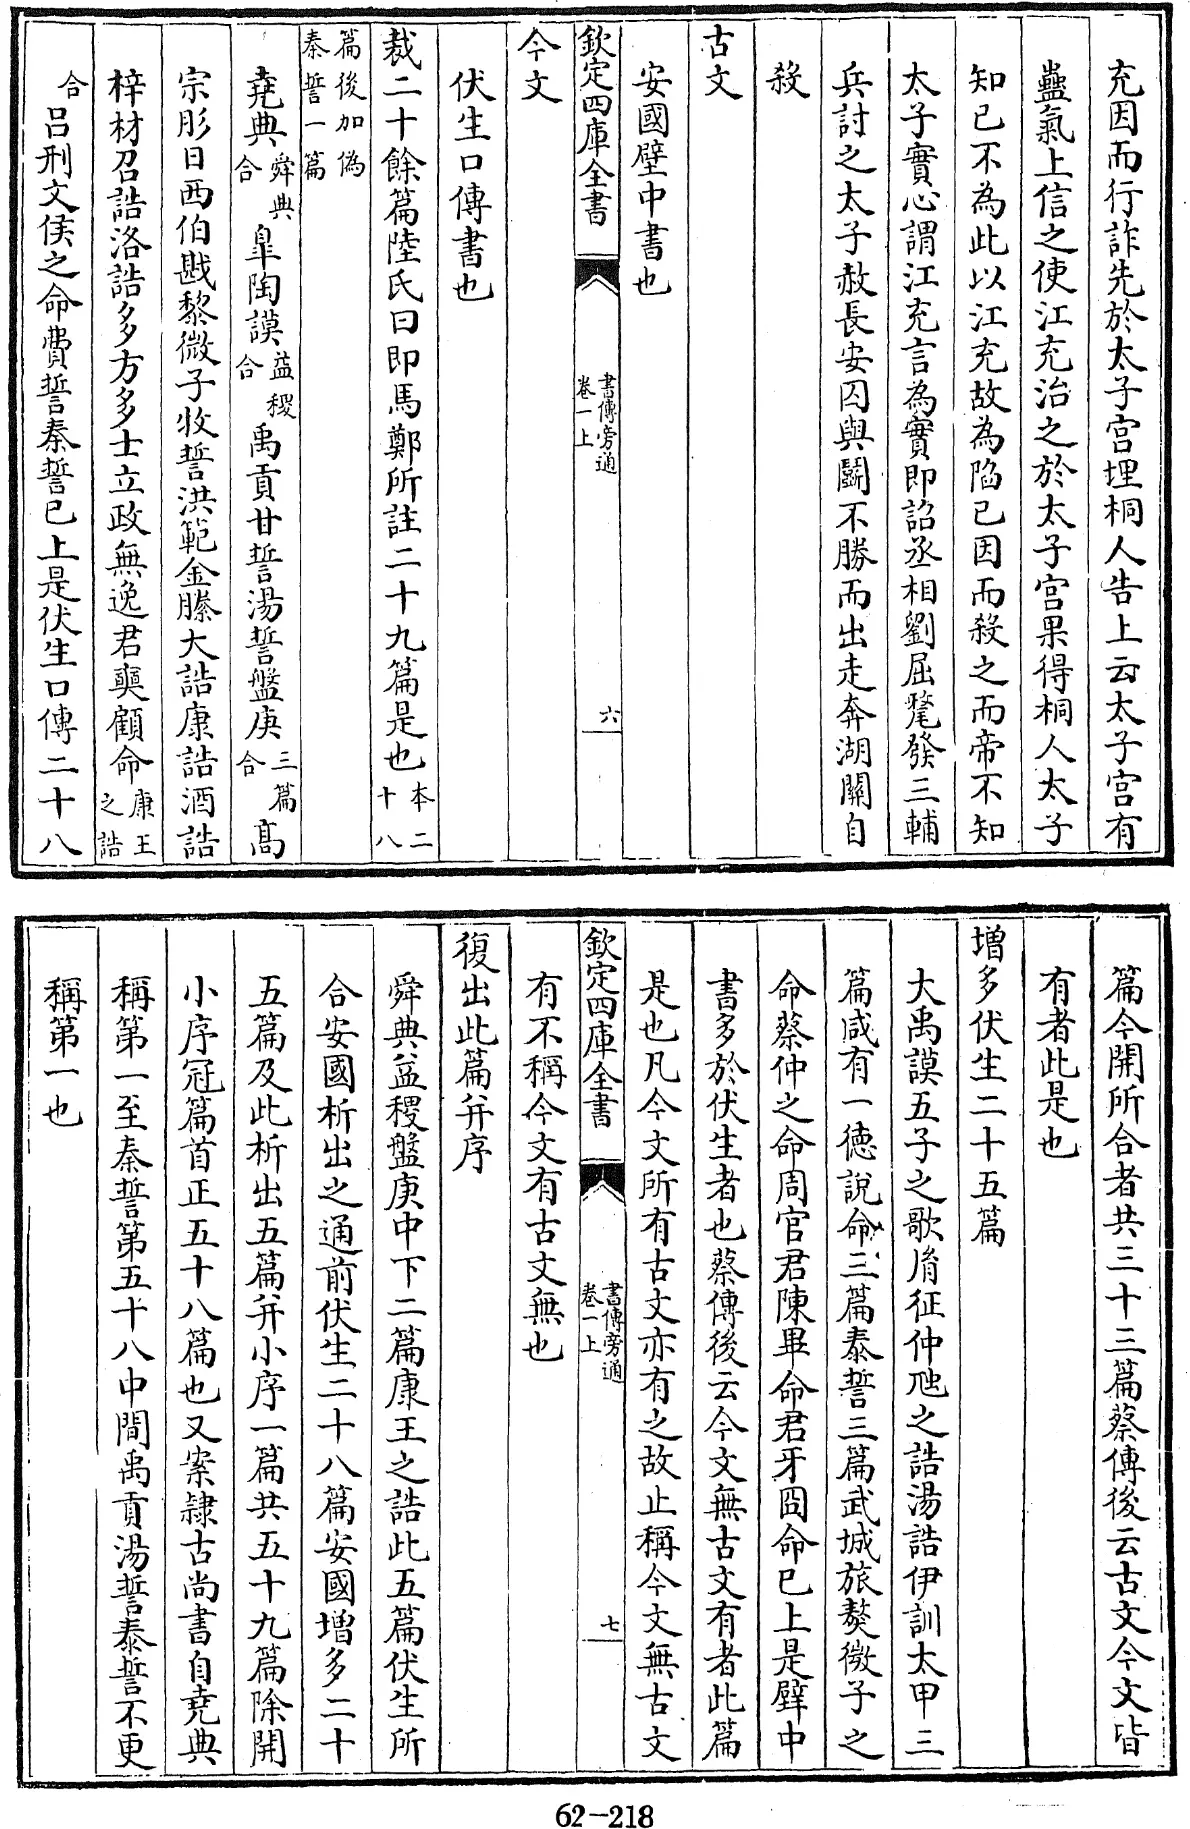 充因而行詐先於太子宮埋桐人告上云太子宮有
蠱氣上信之使江充治之於太子宮果得桐人太子
知已不為此以江充故為陷已因而殺之而帝不知
太子實心謂江充言為實即詔丞相劉屈氂發三輔
兵討之太子赦長安囚與鬭不勝而出走奔湖關自
殺
古文
安國壁中書也
欽定四庫全書
書傳旁通
卷一上
六
今文
伏生口傳書也
裁二十餘篇陸氏曰即馬鄭所註二十九篇是也本二
十八
篇後加偽
泰誓一篇
堯典舜典
合臯陶謨益稷
合禹貢甘誓湯誓盤庚三篇
合高
宗肜日西伯戡黎微子牧誓洪範金縢大誥康誥酒誥
梓材召誥洛誥多方多士立政無逸君奭顧命康王
之誥
合呂刑文侯之命費誓秦誓已上是伏生口傳二十八
篇今開所合者共三十三篇蔡傳後云古文今文皆
有者此是也
增多伏生二十五篇
大禹謨五子之歌胤征仲虺之誥湯誥伊訓太甲三
篇咸有一德說命三篇泰誓三篇武城旅獒微子之
命蔡仲之命周官君陳畢命君牙冏命已上是壁中
書多於伏生者也蔡傳後云今文無古文有者此篇
是也凡今文所有古文亦有之故止稱今文無古文
欽定四庫全書
書傳旁通
卷一上
七
有不稱今文有古文無也
復出此篇并序
舜典益稷盤庚中下二篇康王之誥此五篇伏生所
合安國析出之通前伏生二十八篇安國增多二十
五篇及此析出五篇并小序一篇共五十九篇除開
小序冠篇首正五十八篇也又案隷古尚書自堯典
稱第一至秦誓第五十八中間禹貢湯誓泰誓不更
稱第一也
62-218